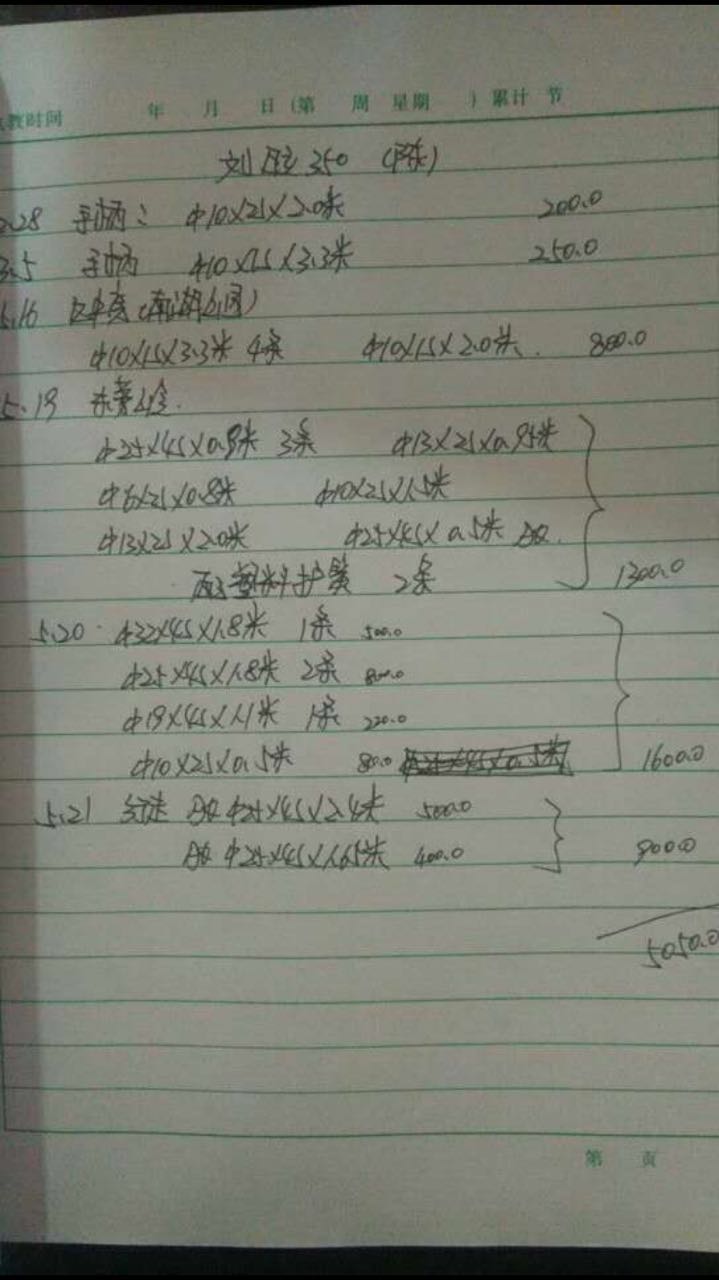 教时间 年 月 日(第 周 星期 )累计 节
刘 350 (陈)
2.28 手柄: Φ10×25×2.0米 200.0
3.5 手柄 Φ10×25×3.3米 250.0
5.16
Φ10×15×3.3米 4条 Φ10×15×2.0米. 800.0
5.19
Φ25×45×0.9米 3条 Φ13×25×0.95米
Φ6×25×0.8米 Φ10×25×1.5米
Φ13×25×2.0米 Φ25×45×0.5米
配塑料护簧 2条 1300.0
5.20 Φ32×45×1.8米 1条 500.0
Φ25×45×1.8米 2条 800.0
Φ19×45×1.1米 1条 220.0
Φ10×25×0.5米 80.0 1600.0
5.21 Φ25×45×2.4米 500.0
Φ25×45×1.65米 400.0 900.0
5050.0
第 页